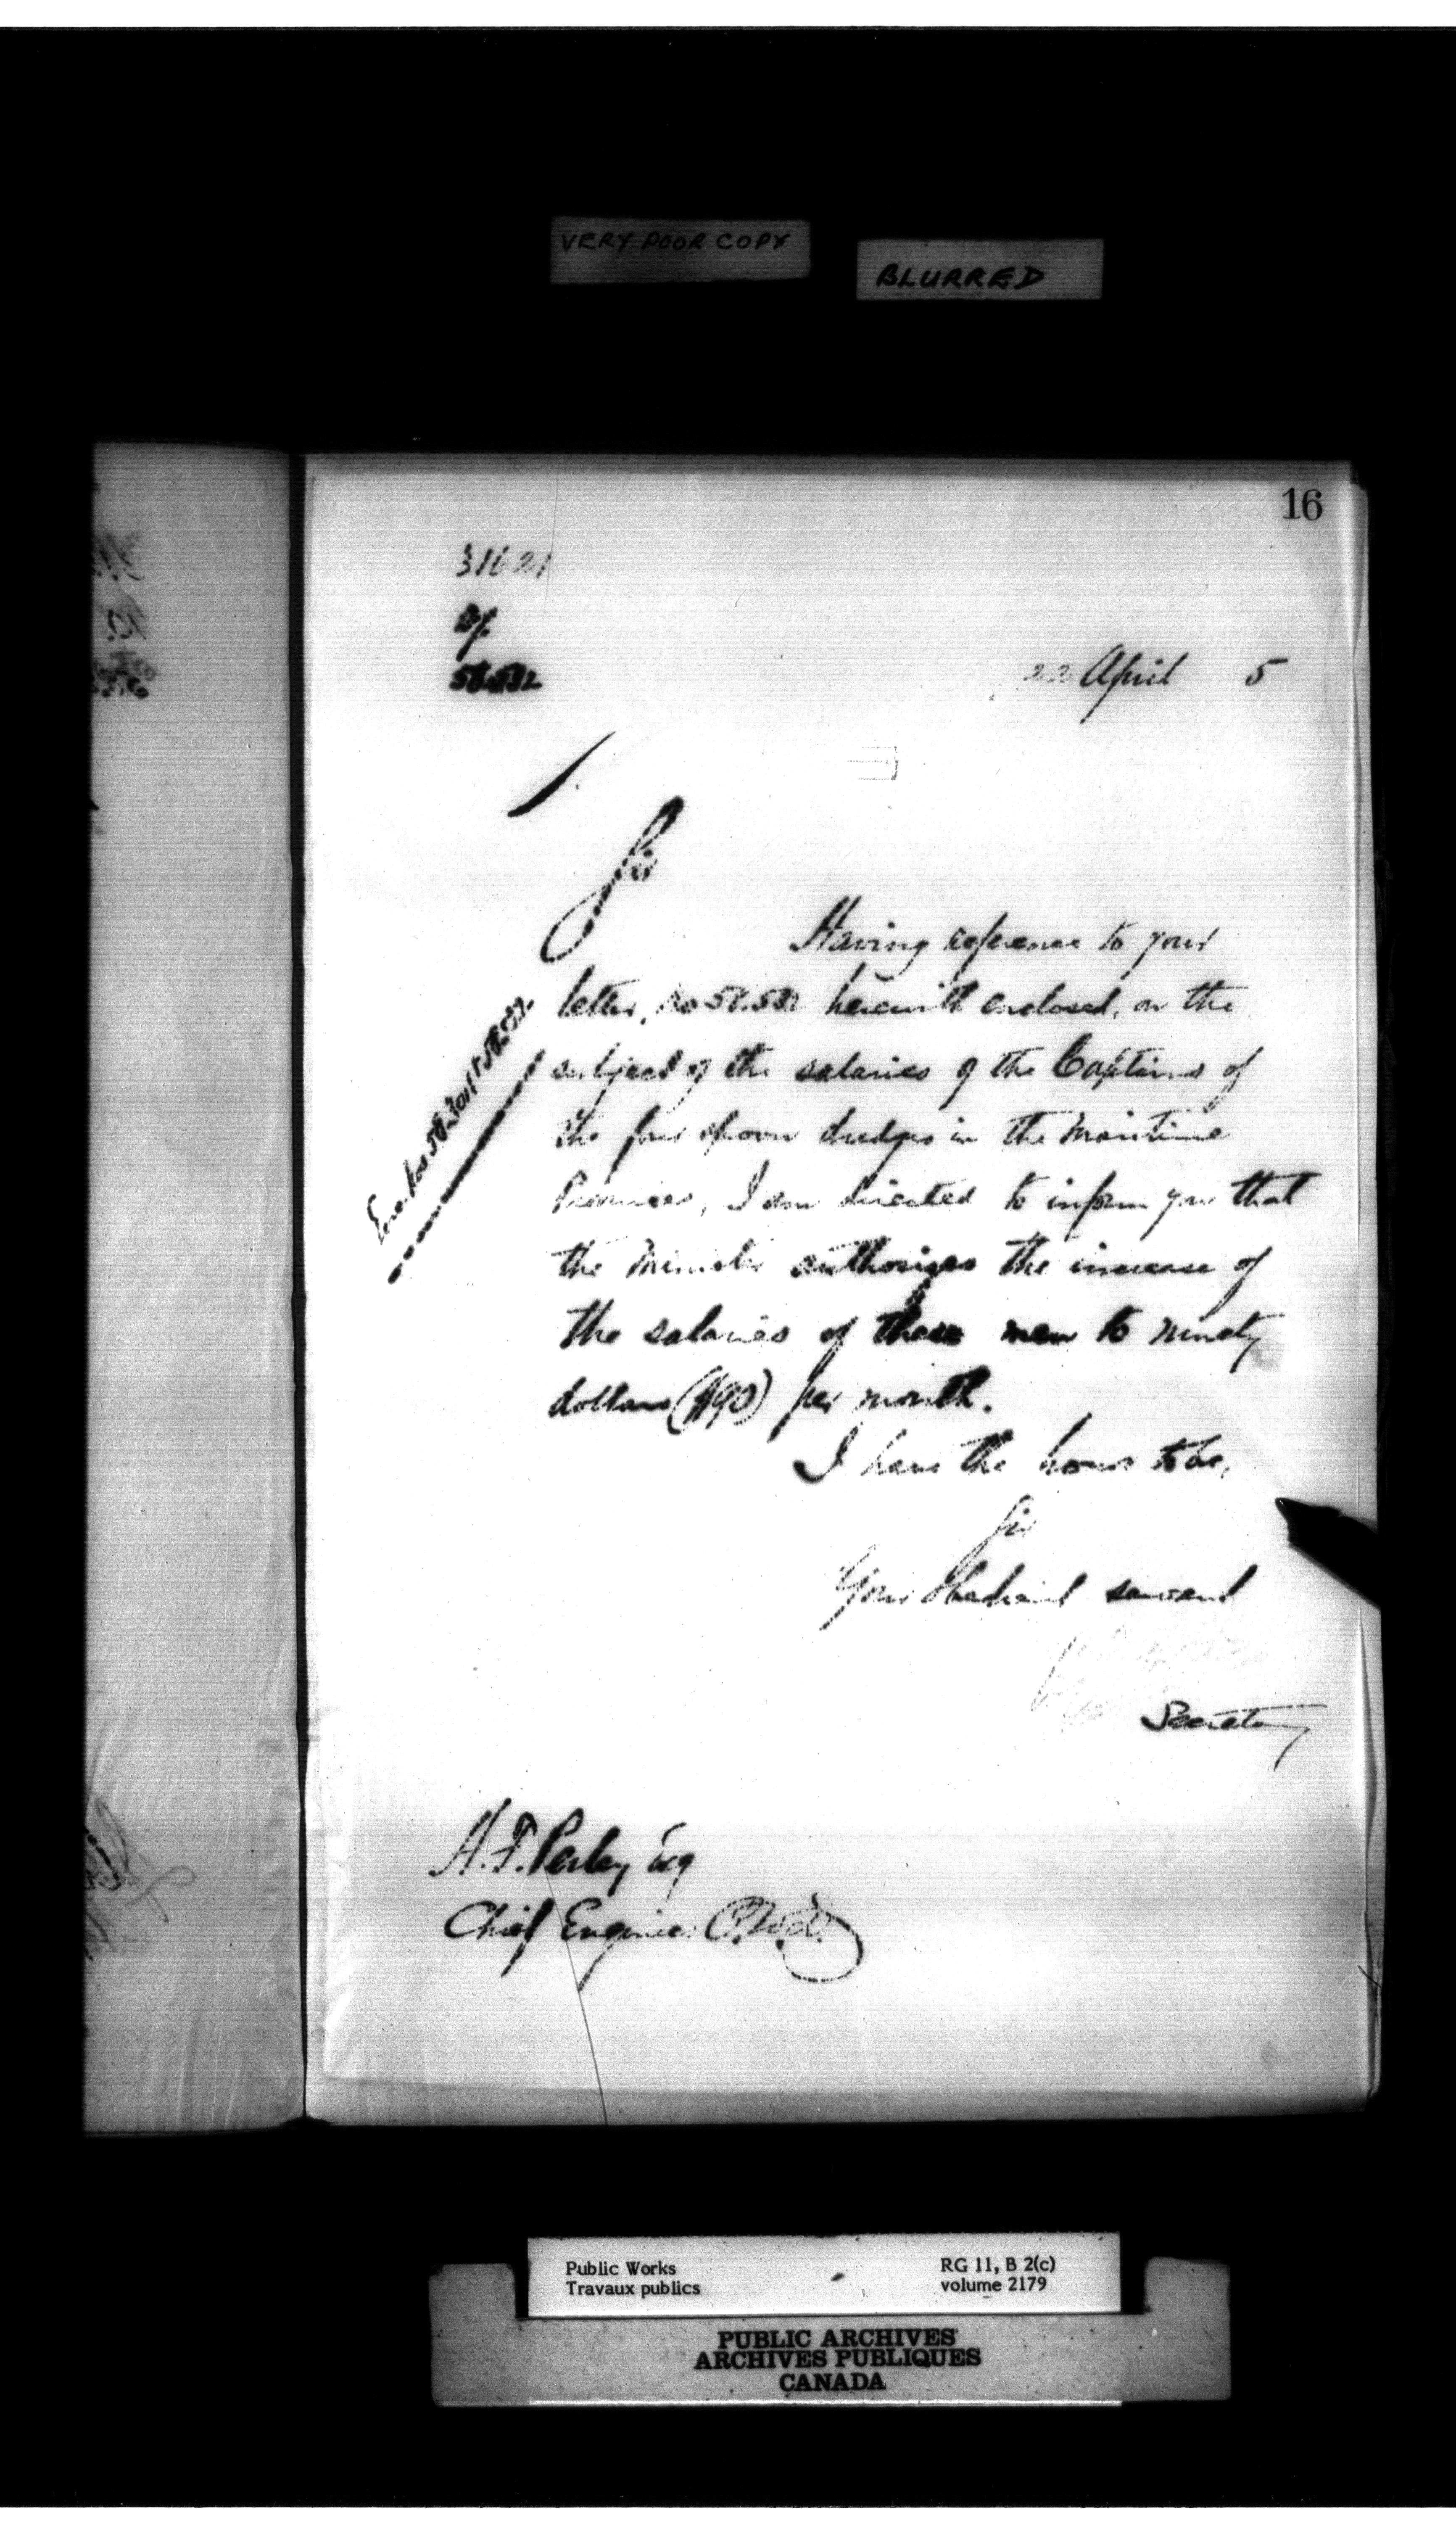 VERY POOR COPY
BLURRED
16
31621
22 April 5
Sir
Having reference to your
letter, No 58.532 herewith enclosed, on the
subject of the salaries of the Captains of
the four spoon dredges in the Maritime
Provinces, I am directed to inform you that
the Minister authorizes the increase of
the salaries of these men to ninety
dollars ($90) per month.
I have the honor to be,
Sir
Your Obedient servant
Secretary
A. F. Perley Esq
Chief Engineer P.W.D.
Public Works
Travaux publics
RG 11, B 2(c)
volume 2179
PUBLIC ARCHIVES
ARCHIVES PUBLIQUES
CANADA